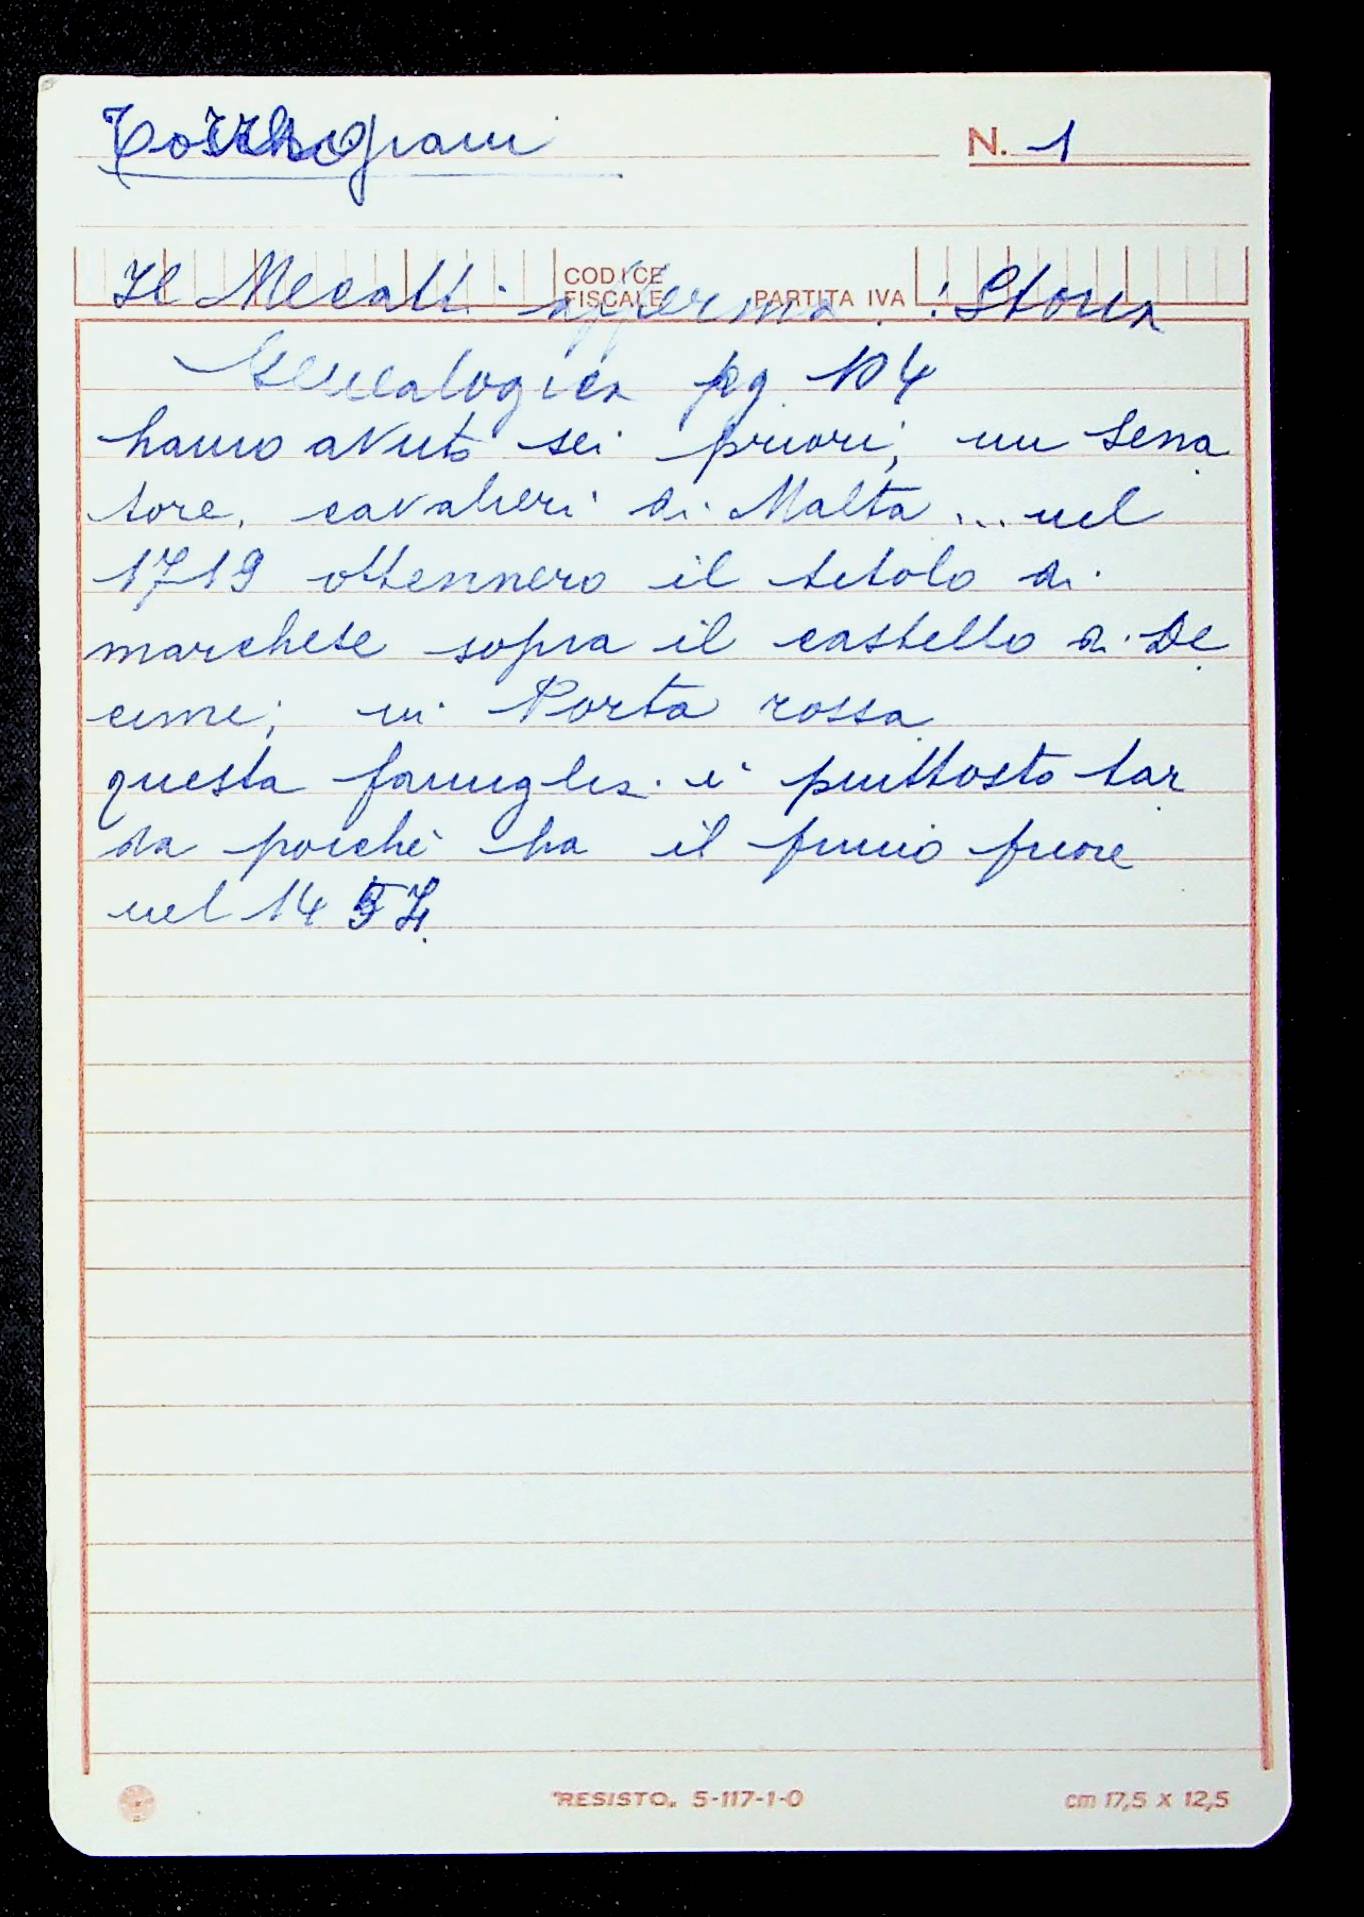 Torrigiani
N. 1
CODICE FISCALE PARTITA IVA
Il Mecatti afferma : Storia
Genealogica pg. 104
hanno avuto sei priori; un Sena
tore, cavalieri di Malta ... nel
1719 ottennero il titolo di
marchese sopra il castello di De
cimo; in Porta rossa
questa famiglia è piuttosto tar
da poiché ha il primo priore
nel 1454.
"RESISTO" 5-117-1-0 cm 17,5 x 12,5